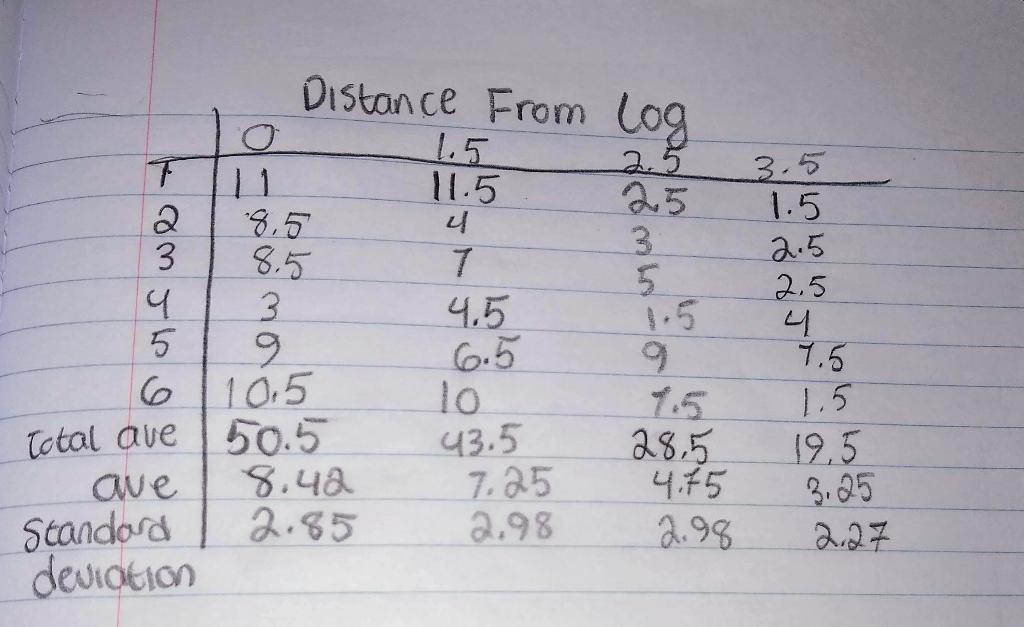 Distance From Log
0 1.5 2.5 3.5
1 11 11.5 2.5 1.5
2 8.5 4 3 2.5
3 8.5 7 5 2.5
4 3 4.5 1.5 4
5 9 6.5 9 7.5
6 10.5 10 7.5 1.5
Total ave 50.5 43.5 28.5 19.5
ave 8.42 7.25 4.75 3.25
Standard 2.85 2.98 2.98 2.27
deviation